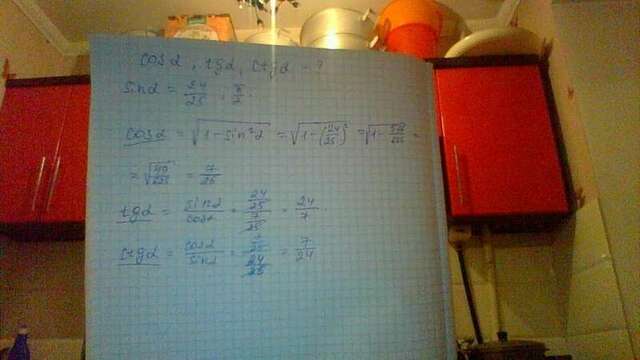 cosα, tgα, ctgα - ?
sinα = 24/25 ; π/2
cosα = √(1 - sin²α) = √(1 - (24/25)²) = √(1 -
= 7/25
tgα = sinα/cosα = 24/25 / 7/25 = 24/7
ctgα = cosα/sinα = 7/25 / 24/25 = 7/24